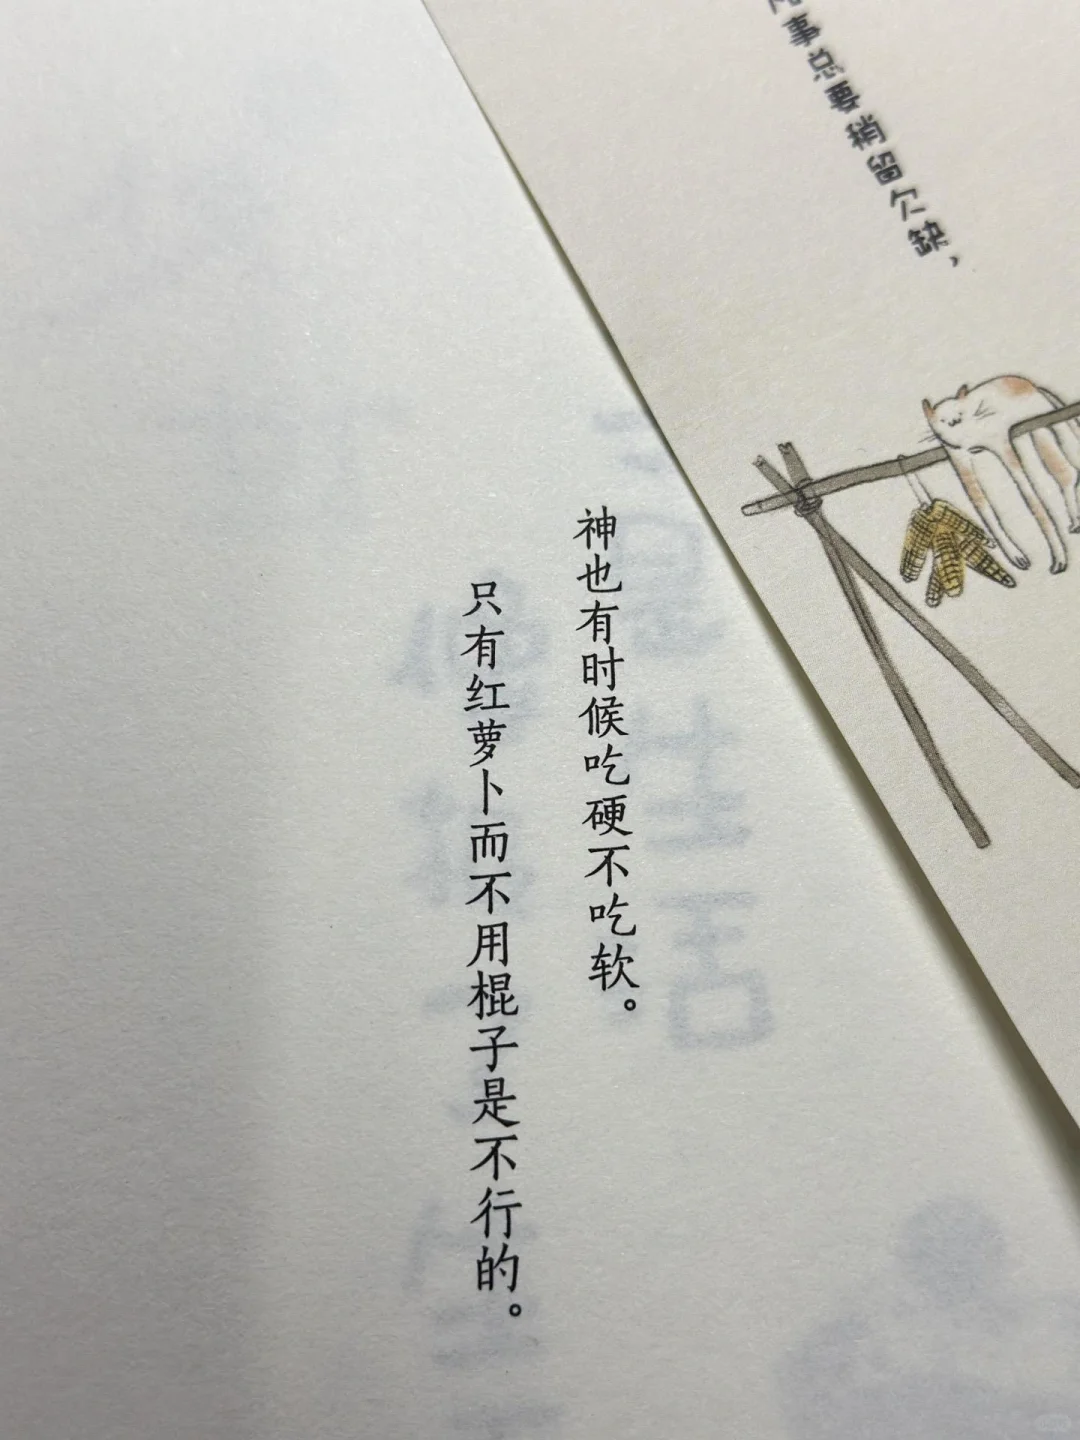 事总要稍留欠缺，
神也有时候吃硬不吃软。
只有红萝卜而不用棍子是不行的。